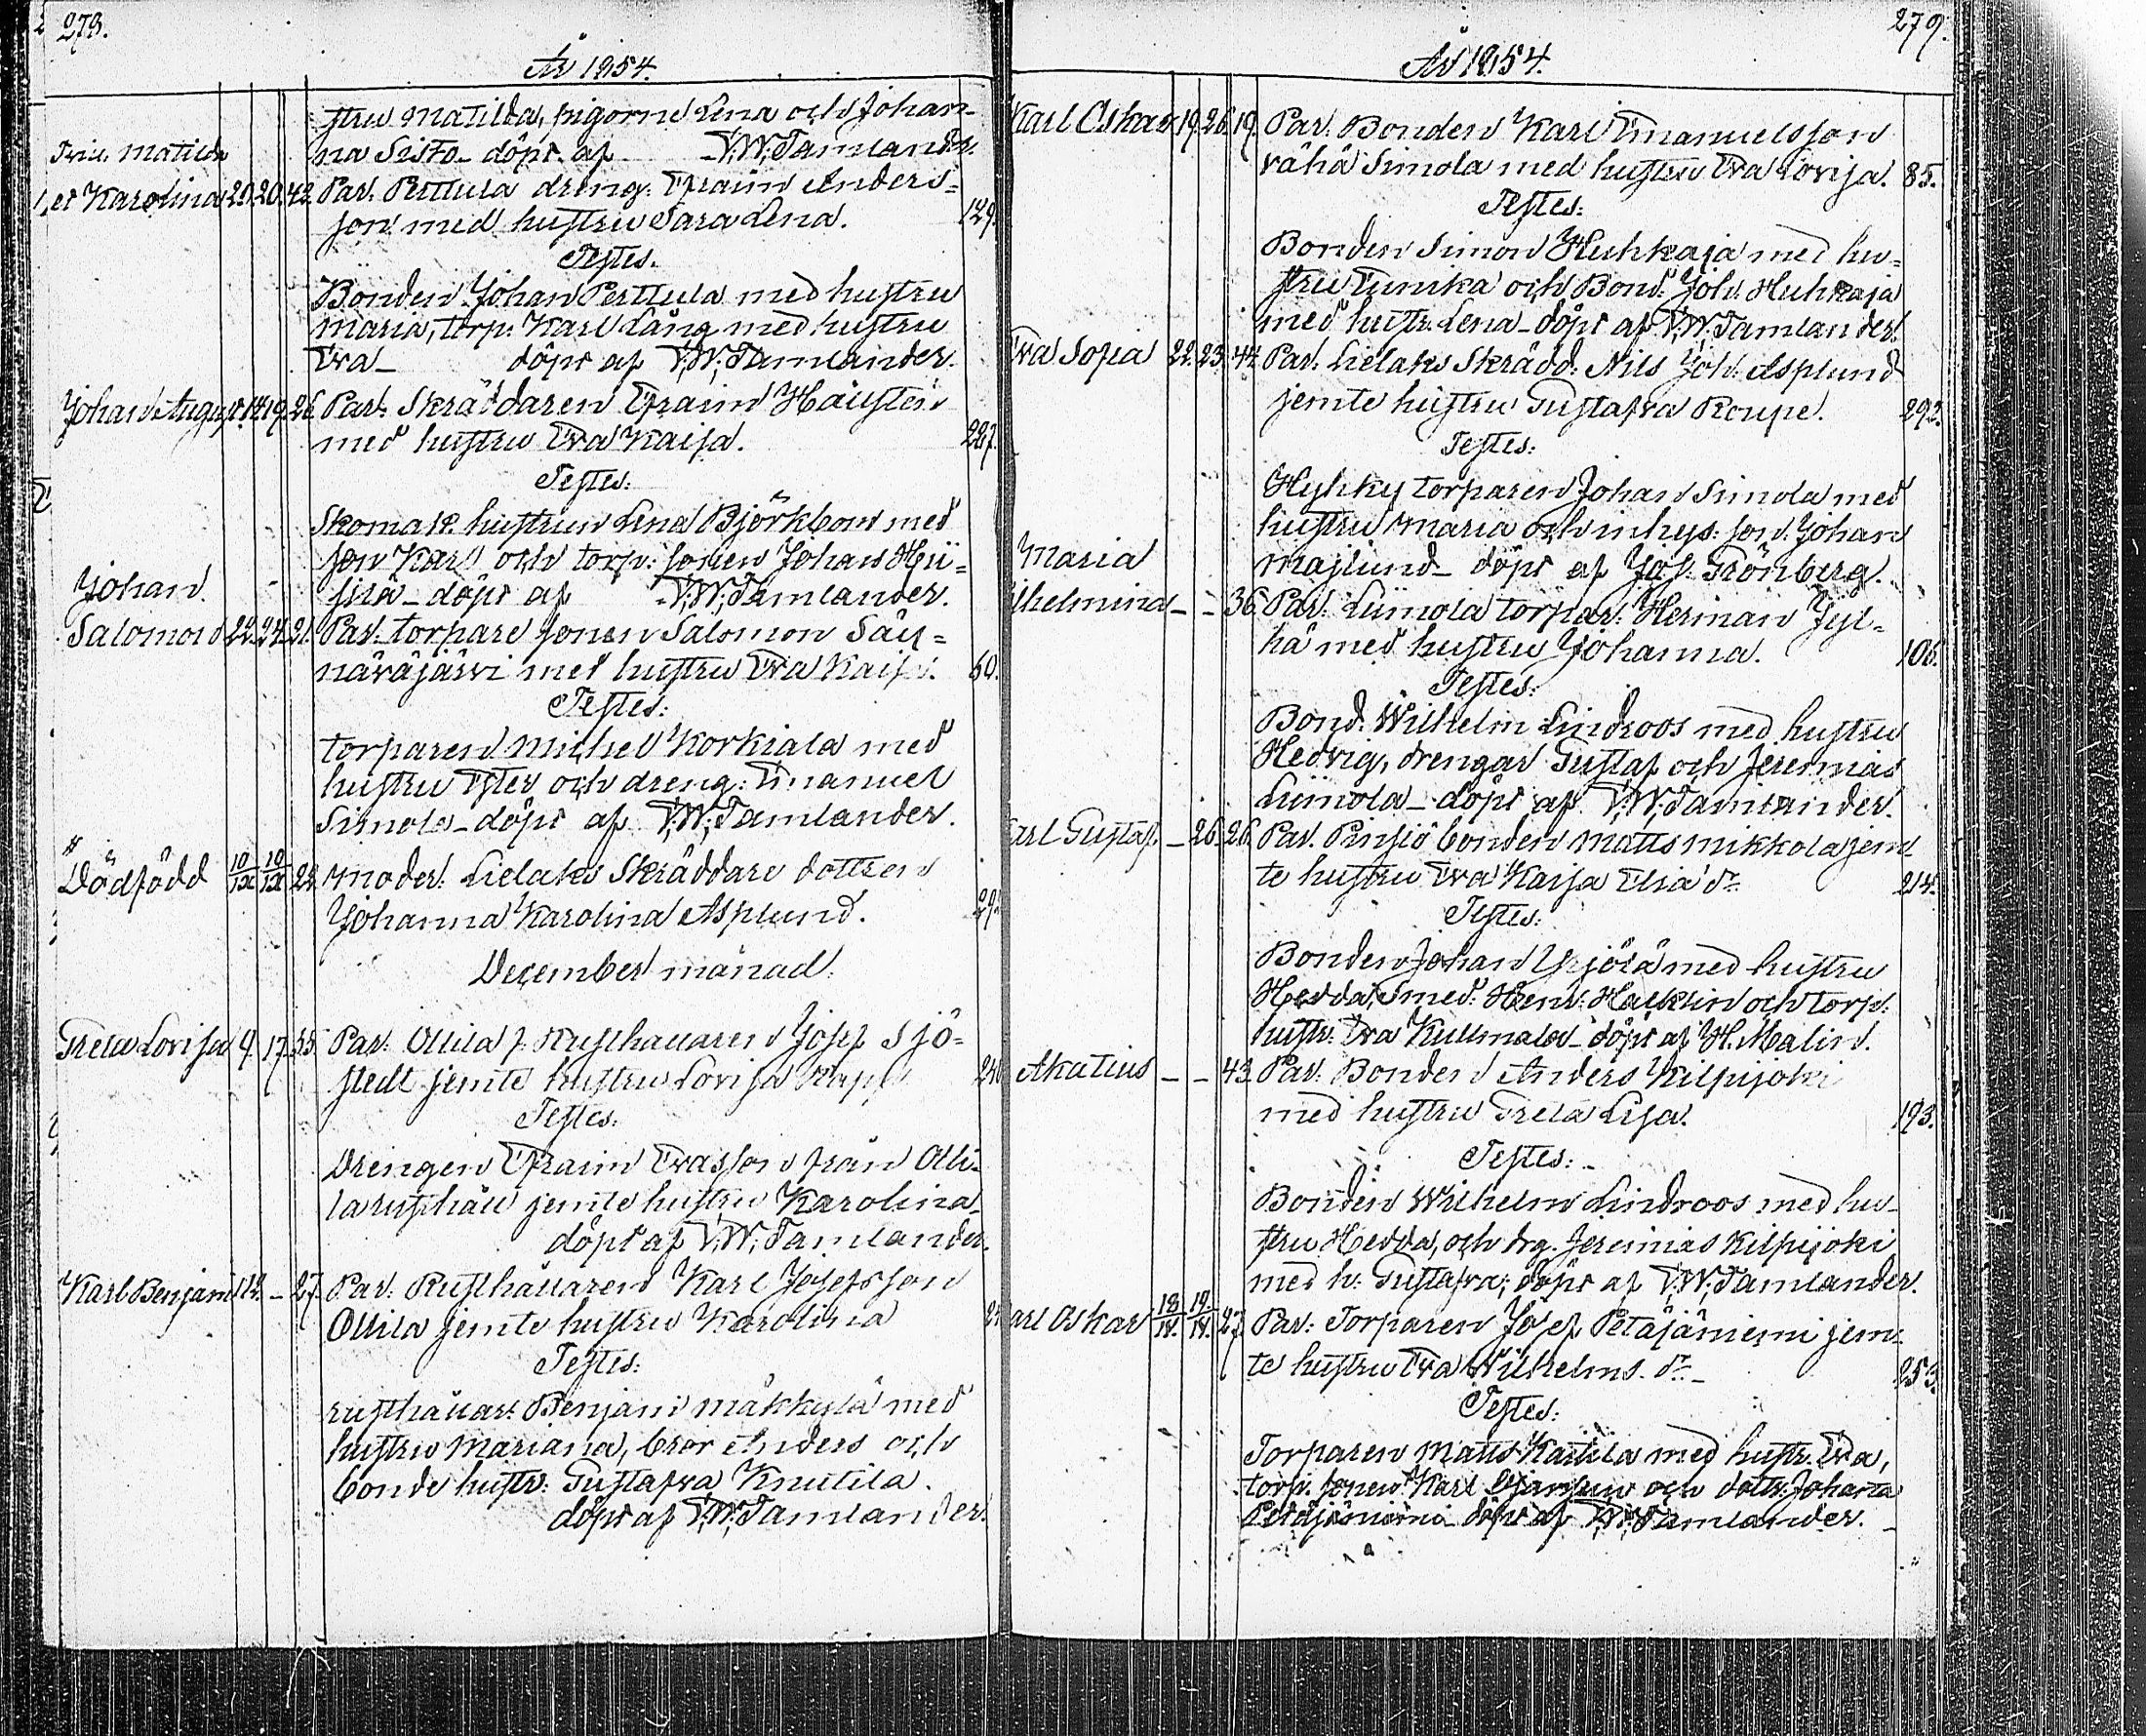 278.
År 1854.
stru Matilda, pigorne Lena och Johan-
na Sisto - döpt af V. W. Tamlander.
Tvill. Matilda
et Karolina 20. 20. 42. Par. Perttula dreng: Efraim Anders-
son med hustru Sara Lena. 129.
Testes.
Bonden Johan Perttula med hustru
Maria, torp: Karl Lång med hustru
Eva - döpt af V. W. Tamlander.
Johan August 14. 19. 26. Par: Skräddaren Efraim Hausten
med hustru Eva Kaisa. 227.
Testes:
Skomak. hustrun Lena Björkbom med
son Karl och torp: sonen Johan Hii-
sisä - döpt af V. W. Tamlander.
Johan
Salomon 22. 24. 21. Par: torpare sonen Salomon Säy-
näväjärvi med hustru Eva Kaisa. 60.
Testes:
torparen Michel Korkiala med
hustru Ester och dreng: Emanuel
Simola - döpt af V. W. Tamlander.
Dödfödd 10/IX 10/IX 22. Moder: Lielaks Skräddare dottren
Johanna Karolina Asplund. 292
December månad.
Greta Lovisa 9. 17. 35. Par: Ollila f. Rusthållaren Josef Sjö-
stedt jemte hustru Lovisa Rapp.
Testes:
Drengen Efraim Evasson från Olli-
la rusthåll jemte hustru Karolina
döpt af V. W. Tamlander.
Karl Benjam: 12. - 27. Par: Rusthållaren Karl Josefsson
Ollila jemte hustru Karolina
Testes:
rusthållar: Benjam: Mäkkylä med
hustru Mariana, bror Anders och
bonde hustr: Gustafva Knutila.
döpt af V. W. Tamlander.
279.
År 1854.
Karl Oskar 19. 26. 19. Par: Bonden Karl Emanuelsson
Vähä Simola med hustru Eva Lovisa. 85.
Testes:
Bonden Simon Huhkaja med hu-
stru Eunika och Bond: Joh: Huhkaja
med hustr: Lena - döpt af V. W. Tamlander.
Eva Sofia 22. 23. 44. Par: Lielaks Skrädd: Nils Joh: Asplund
jemte hustru Gustafva Roupe. 292.
Testes:
Hyhky torparen Johan Simola med
hustru Maria och inhys: son Johan
Majlund - döpt af Jos. Grönberg.
Maria
ilhelmina - - 36. Par: Liimola torpar: Herman Jyl-
hä med hustru Johanna. 106.
Testes:
Bond. Wilhelm Lindroos med hustru
Hedvig, drengar Gustaf och Jeremias
Liimola - döpt af V. W. Tamlander.
arl Gustaf. - 26. 26. Par. Pinsiö bonden Matts Mikkola jem-
te hustru Eva Kaisa Elia dr. 214.
Testes:
Bonden Johan Yrjölä med hustru
Hedda, Smed: Henr: Hacklin och torp:
hustr: Eva Kullmala - döpt af H. Malin.
Akatius - - 43. Par: Bonden Anders Kilpijoki
med hustru Greta Lisa. 193.
Testes:
Bonden Wilhelm Lindroos med hu-
stru Hedda, och drg. Jeremias Kilpijoki
med h: Gustafva; döpt af V. W. Tamlander.
arl Oskar 27. Par: Torparen Josef Petäjäniemi jem-
te hustru Eva Wilhelms dr. 253.
Testes:
Torparen Matts Kartila med hustr. Eva,
torp. sonen Karl och dottr: Johanna
Petäjäniemi döpt af V. W. Tamlander.